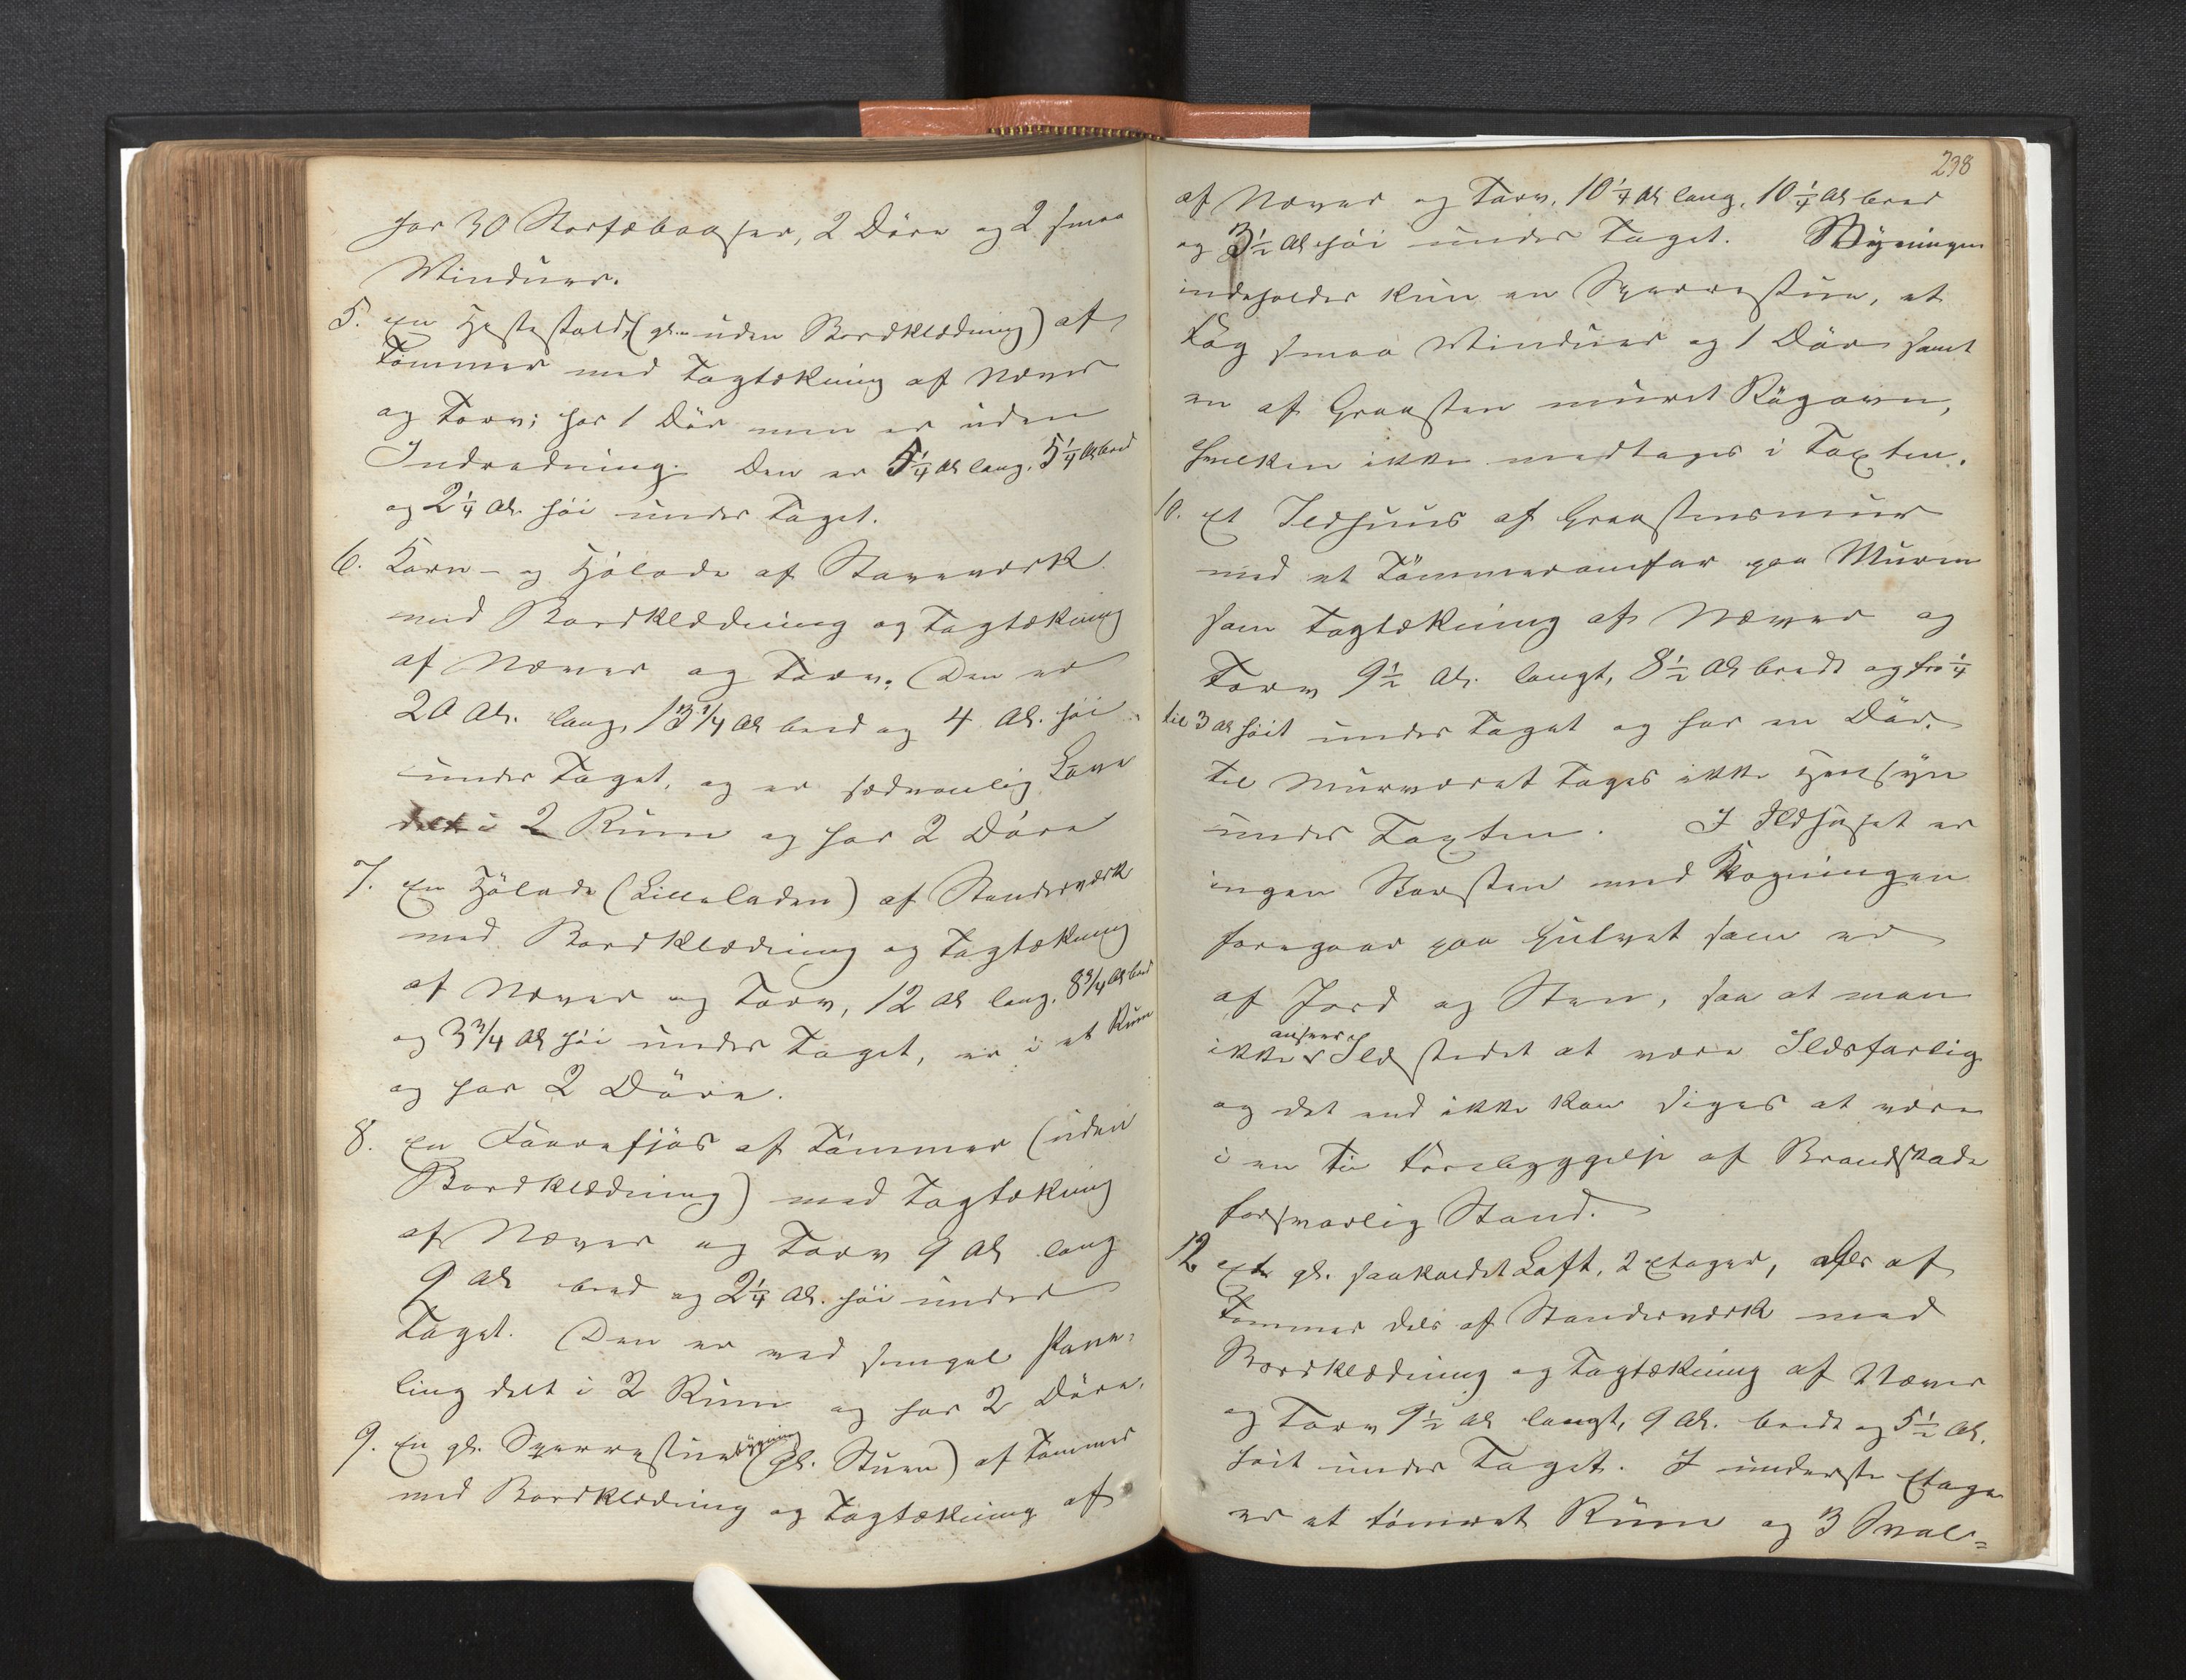 har 30 Storfæbaaser, 2 Döre og 2 smaa
Vinduer.
5. En Hestestald, (gl. uden Bordklædning) af
Tømmer med Tagtækning af Næver
og Torv; har 1 Dör men er uden
Indredning. Den er 5¼ Al. lang, 5¼ Al bred
og 2¼ Al. höi under Taget.
6. Korn- og Hölade af Stavværk
med Bordklædning og Tagtækning
af Næver og Torv. Den er
20 Al. lang, 13¼ Al bred og 4 Al. höi
under Taget, og er sædvanlig Lave
delt i 2 Rum og har 2 Döre
7. En Hölade (Lilleladen) af Standerværk
med Bordklædning og Tagtækning
af Næver og Torv, 12 Al lang, 8¾ Al bred
og 3¾ Al höi under Taget, er i et Rum
og har 2 Döre.
8. En Faarefjös af Tömmer (uden
Bordklædning) med Tagtækning
af Næver og Torv 9 Al lang
9 Al bred og 2¼ Al. höi under
Taget. Den er ved simpel Pane-
ling delt i 2 Rum og har 2 Döre.
9. En gl. Sperrestuebygning (gl. Stuen) af Tømmer
med Bordklædning og Tagtækning af
238
af Næver og Torv, 10¼ Al lang, 10¼ Al bred
og 3½ Al höi under Taget. Bygningen
indeholder kun en Sperrestue, et
Fag smaa Vinduer og 1 Dör samt
en af Graasten muret Rögovn,
hvilken ikke medtages i Taxten.
10. Et Ildhuus af Graastensmuur
med et Tömmeromfar paa Muren
som Tagtækning af Næver og
Torv 9½ Al. langt, 8½ Al bredt og fra ¼
til 3 Al höit under Taget og har en Dör.
Til Murværket tages ikke Hensyn
under Taxten. I Ildhuset er
ingen Skorsten med Kogningen
foregaar paa Gulvet som er
af Jord og Sten, saa at man
ikke anseer Ildstedet at være Ildsfarlig
og det end ikke kan siges at være
i en til Forebyggelse af Brandskade
forsvarlig Stand.
12. Et gl. saakaldet Loft, 2 Etager, dels af
Tommer dels af Standerværk med
Bordklædning og Tagtækning af Næver
og Torv 9½ Al langt, 9 Al. bredt og 5½ Al.
höit under Taget. I underste Etage
er et tömret Rum og 3 Sval-